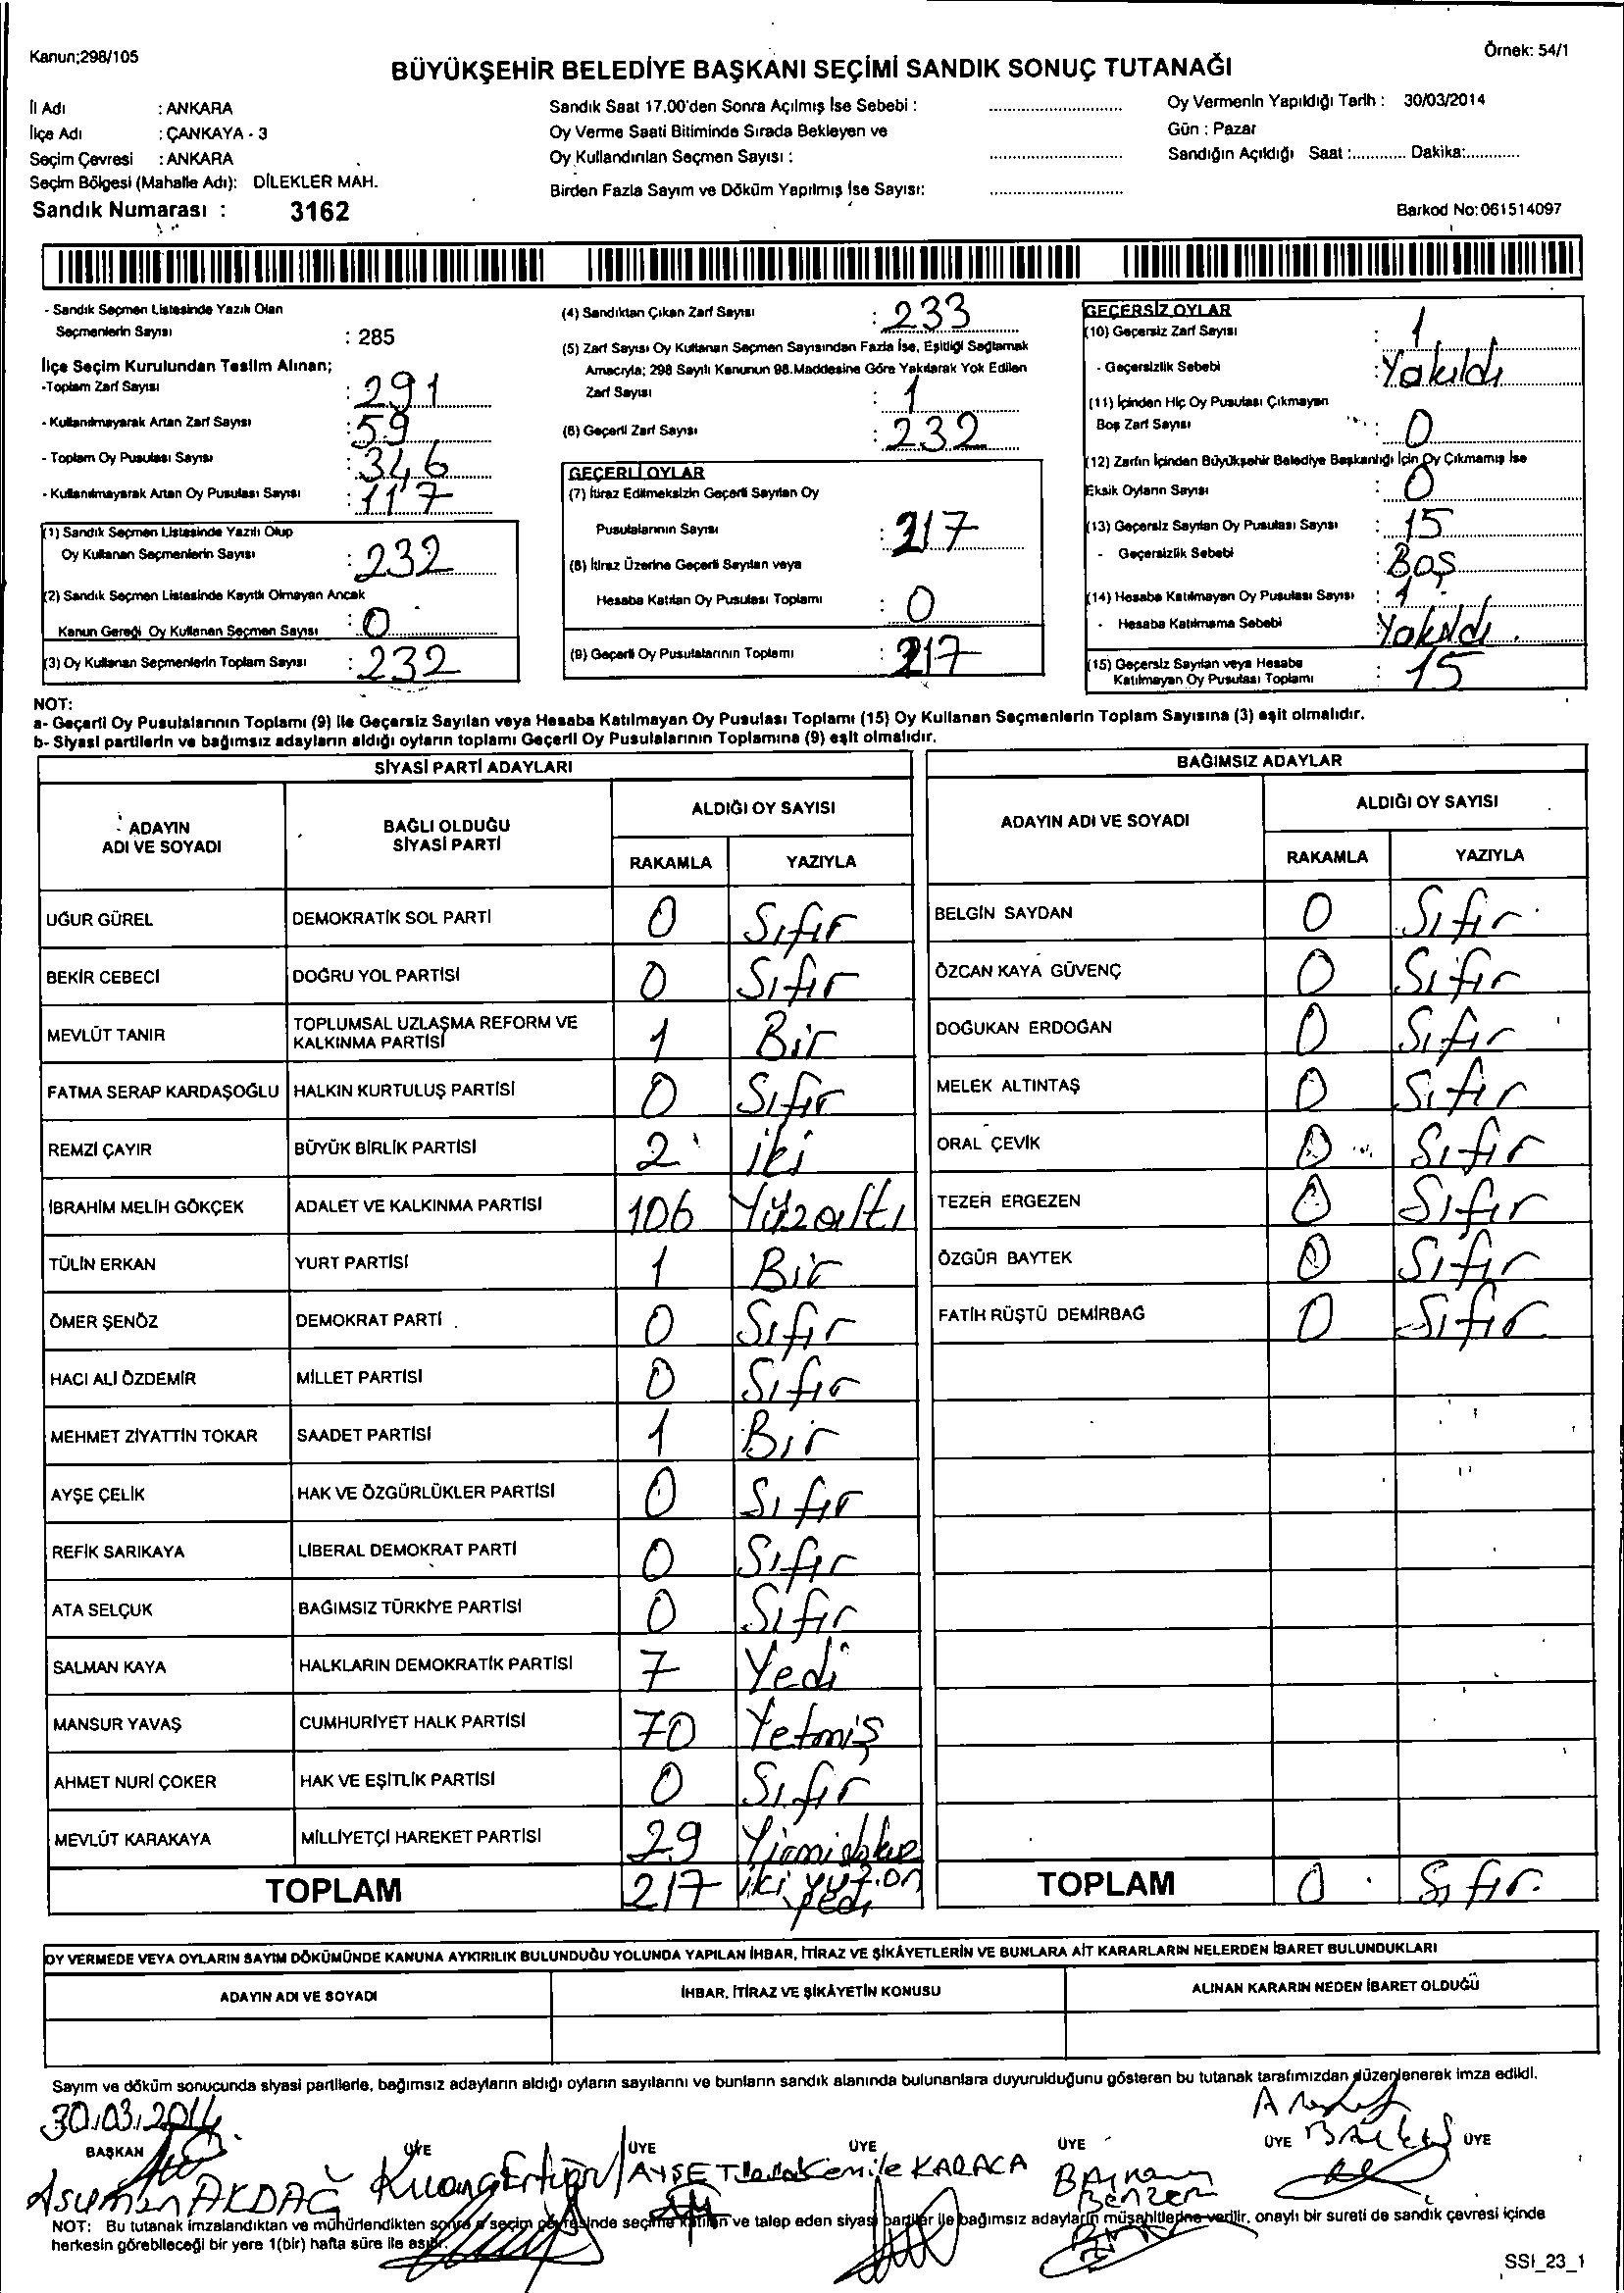 Kanun;298/105
Örnek: 54/1
BÜYÜKŞEHİR BELEDİYE BAŞKANI SEÇİMİ SANDIK SONUÇ TUTANAĞI
İl Adı : ANKARA
İlçe Adı : ÇANKAYA - 3
Seçim Çevresi : ANKARA
Seçim Bölgesi (Mahalle Adı): DİLEKLER MAH.
Sandık Numarası : 3162
Sandık Saat 17.00'den Sonra Açılmış İse Sebebi : ........................
Oy Verme Saati Bitiminde Sırada Bekleyen ve
Oy Kullandırılan Seçmen Sayısı : ........................
Birden Fazla Sayım ve Döküm Yapılmış İse Sayısı: ........................
Oy Vermenin Yapıldığı Tarih : 30/03/2014
Gün : Pazar
Sandığın Açıldığı Saat :............ Dakika:............
Barkod No:061514097
- Sandık Seçmen Listesinde Yazılı Olan
Seçmenlerin Sayısı : 285
İlçe Seçim Kurulundan Teslim Alınan;
-Toplam Zarf Sayısı : 291
- Kullanılmayarak Artan Zarf Sayısı : 59
- Toplam Oy Pusulası Sayısı : 346
- Kullanılmayarak Artan Oy Pusulası Sayısı : 117
(1) Sandık Seçmen Listesinde Yazılı Olup
Oy Kullanan Seçmenlerin Sayısı : 232
(2) Sandık Seçmen Listesinde Kayıtlı Olmayan Ancak
Kanun Gereği Oy Kullanan Seçmen Sayısı : 0
(3) Oy Kullanan Seçmenlerin Toplam Sayısı : 232
(4) Sandıktan Çıkan Zarf Sayısı : 233
(5) Zarf Sayısı Oy Kullanan Seçmen Sayısından Fazla İse, Eşitliği Sağlamak
Amacıyla; 298 Sayılı Kanunun 98.Maddesine Göre Yakılarak Yok Edilen
Zarf Sayısı : 1
(6) Geçerli Zarf Sayısı : 232
GEÇERLİ OYLAR
(7) İtiraz Edilmeksizin Geçerli Sayılan Oy
Pusulalarının Sayısı : 217
(8) İtiraz Üzerine Geçerli Sayılan veya
Hesaba Katılan Oy Pusulası Toplamı : 0
(9) Geçerli Oy Pusulalarının Toplamı : 217
GEÇERSİZ OYLAR
(10) Geçersiz Zarf Sayısı : 1
- Geçersizlik Sebebi : Yakıldı
(11) İçinden Hiç Oy Pusulası Çıkmayan
Boş Zarf Sayısı : 0
(12) Zarfın İçinden Büyükşehir Belediye Başkanlığı İçin Oy Çıkmamış İse
Eksik Oyların Sayısı : 0
(13) Geçersiz Sayılan Oy Pusulası Sayısı : 15
- Geçersizlik Sebebi : Boş
(14) Hesaba Katılmayan Oy Pusulası Sayısı : 1
- Hesaba Katılmama Sebebi : Yakıldı.
(15) Geçersiz Sayılan veya Hesaba
Katılmayan Oy Pusulası Toplamı : 15
NOT:
a- Geçerli Oy Pusulalarının Toplamı (9) ile Geçersiz Sayılan veya Hesaba Katılmayan Oy Pusulası Toplamı (15) Oy Kullanan Seçmenlerin Toplam Sayısına (3) eşit olmalıdır.
b- Siyasi partilerin ve bağımsız adayların aldığı oyların toplamı Geçerli Oy Pusulalarının Toplamına (9) eşit olmalıdır.
SİYASİ PARTİ ADAYLARI
ADAYIN ADI VE SOYADI BAĞLI OLDUĞU SİYASİ PARTİ ALDIĞI OY SAYISI
RAKAMLA YAZIYLA
UĞUR GÜREL DEMOKRATİK SOL PARTİ 0 Sıfır
BEKİR CEBECİ DOĞRU YOL PARTİSİ 0 Sıfır
MEVLÜT TANIR TOPLUMSAL UZLAŞMA REFORM VE KALKINMA PARTİSİ 1 Bir
FATMA SERAP KARDAŞOĞLU HALKIN KURTULUŞ PARTİSİ 0 Sıfır
REMZİ ÇAYIR BÜYÜK BİRLİK PARTİSİ 2 iki
İBRAHİM MELİH GÖKÇEK ADALET VE KALKINMA PARTİSİ 106 Yüzaltı
TÜLİN ERKAN YURT PARTİSİ 1 Bir
ÖMER ŞENÖZ DEMOKRAT PARTİ 0 Sıfır
HACI ALİ ÖZDEMİR MİLLET PARTİSİ 0 Sıfır
MEHMET ZİYATTİN TOKAR SAADET PARTİSİ 1 Bir
AYŞE ÇELİK HAK VE ÖZGÜRLÜKLER PARTİSİ 0 Sıfır
REFİK SARIKAYA LİBERAL DEMOKRAT PARTİ 0 Sıfır
ATA SELÇUK BAĞIMSIZ TÜRKİYE PARTİSİ 0 Sıfır
SALMAN KAYA HALKLARIN DEMOKRATİK PARTİSİ 7 Yedi
MANSUR YAVAŞ CUMHURİYET HALK PARTİSİ 70 Yetmiş
AHMET NURİ ÇOKER HAK VE EŞİTLİK PARTİSİ 0 Sıfır
MEVLÜT KARAKAYA MİLLİYETÇİ HAREKET PARTİSİ 29 Yirmidokuz
TOPLAM 217 iki yüz on yedi
BAĞIMSIZ ADAYLAR
ADAYIN ADI VE SOYADI ALDIĞI OY SAYISI
RAKAMLA YAZIYLA
BELGİN SAYDAN 0 Sıfır
ÖZCAN KAYA GÜVENÇ 0 Sıfır
DOĞUKAN ERDOĞAN 0 Sıfır
MELEK ALTINTAŞ 0 Sıfır
ORAL ÇEVİK 0 Sıfır
TEZER ERGEZEN 0 Sıfır
ÖZGÜR BAYTEK 0 Sıfır
FATİH RÜŞTÜ DEMİRBAĞ 0 Sıfır
TOPLAM 0 Sıfır.
OY VERMEDE VEYA OYLARIN SAYIM DÖKÜMÜNDE KANUNA AYKIRILIK BULUNDUĞU YOLUNDA YAPILAN İHBAR, İTİRAZ VE ŞİKÂYETLERİN VE BUNLARA AİT KARARLARIN NELERDEN İBARET BULUNDUKLARI
ADAYIN ADI VE SOYADI İHBAR, İTİRAZ VE ŞİKÂYETİN KONUSU ALINAN KARARIN NEDEN İBARET OLDUĞU
Sayım ve döküm sonucunda siyasi partilerle, bağımsız adayların aldığı oyların sayılarını ve bunların sandık alanında bulunanlara duyurulduğunu gösteren bu tutanak tarafımızdan düzenlenerek imza edildi.
30.03.2014
BAŞKAN ÜYE ÜYE ÜYE ÜYE ÜYE ÜYE
Asuman AKDAĞ AYŞE Cemile KARACA
NOT: Bu tutanak imzalandıktan ve mühürlendikten sonra o seçim çevresinde seçime katılan ve talep eden siyasi partiler ile bağımsız adayların müşahitlerine verilir, onaylı bir sureti de sandık çevresi içinde
herkesin görebileceği bir yere 1(bir) hafta süre ile asılır.
SSI_23_1